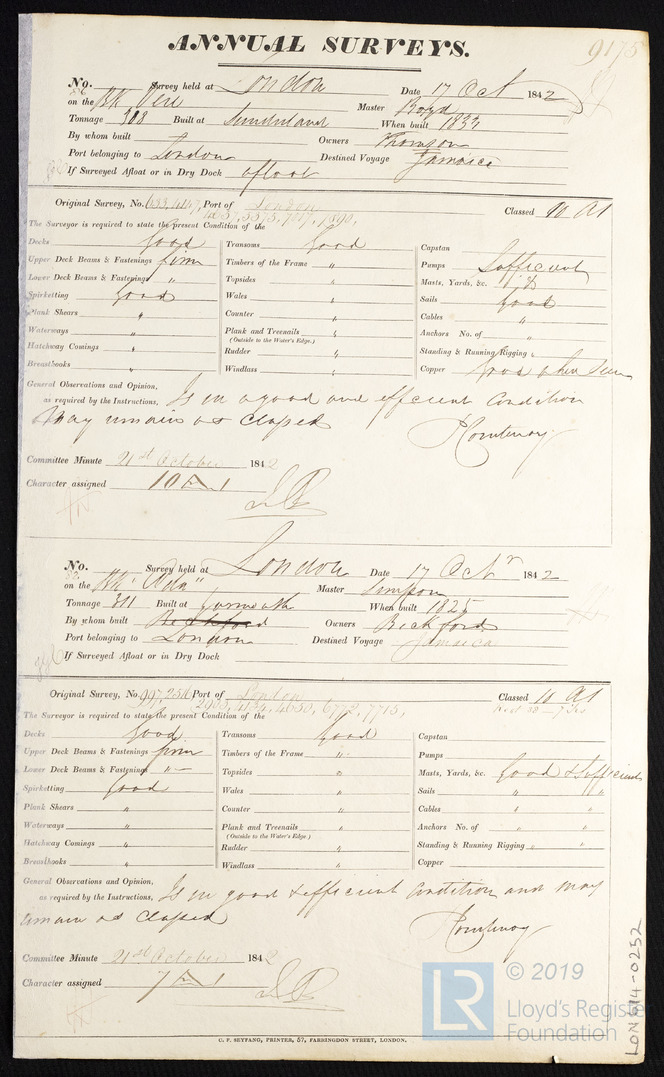 ANNUAL SURVEYS.
9175
No. Survey held at London Date 17 Oct 1842
on the Bk Vere Master Boyd
Tonnage 308 Built at Sunderland When built 1833
By whom built Owners Thomson
Port belonging to London Destined Voyage Jamaica
If Surveyed Afloat or in Dry Dock afloat
Original Survey, No. Port of London Classed 10 A1
The Surveyor is required to state the present Condition of the
Decks Good Transoms Good Capstan
Upper Deck Beams & Fastenings firm Timbers of the Frame " Pumps Sufficient
Lower Deck Beams & Fastenings " Topsides " Masts, Yards, &c.
Spirketting Good Wales " Sails Good
Plank Shears " Counter " Cables "
Waterways " Plank and Treenails " Anchors No. of "
(Outside to the Water's Edge.)
Hatchway Comings " Rudder " Standing & Running Rigging "
Breasthooks " Windlass " Copper Good when seen
General Observations and Opinion,
as required by the Instructions, Is in a good and efficient Condition
May remain as Classed
Courtenay
Committee Minute 21st October 1842
Character assigned 10 A 1
No. Survey held at London Date 17 Octr 1842
on the Bk "Ada" Master Simpson
Tonnage 311 Built at Yarmouth When built 1825
By whom built Bickford Owners Bickford
Port belonging to London Destined Voyage Jamaica
If Surveyed Afloat or in Dry Dock
Original Survey, No. Port of London Classed 10 A1
The Surveyor is required to state the present Condition of the
Decks Good Transoms Good Capstan
Upper Deck Beams & Fastenings firm Timbers of the Frame " Pumps
Lower Deck Beams & Fastenings " Topsides " Masts, Yards, &c. Good & Sufficient
Spirketting Good Wales " Sails " "
Plank Shears " Counter " Cables " "
Waterways " Plank and Treenails " Anchors No. of " "
(Outside to the Water's Edge.)
Hatchway Comings " Rudder " Standing & Running Rigging " "
Breasthooks " Windlass " Copper
General Observations and Opinion,
as required by the Instructions, Is in good & efficient Condition and may
remain as Classed
Courtenay
Committee Minute 21st October 1842
Character assigned 7 A 1
C. F. SEYFANG, PRINTER, 57, FARRINGDON STREET, LONDON.
LR © 2019
Lloyd's Register
Foundation